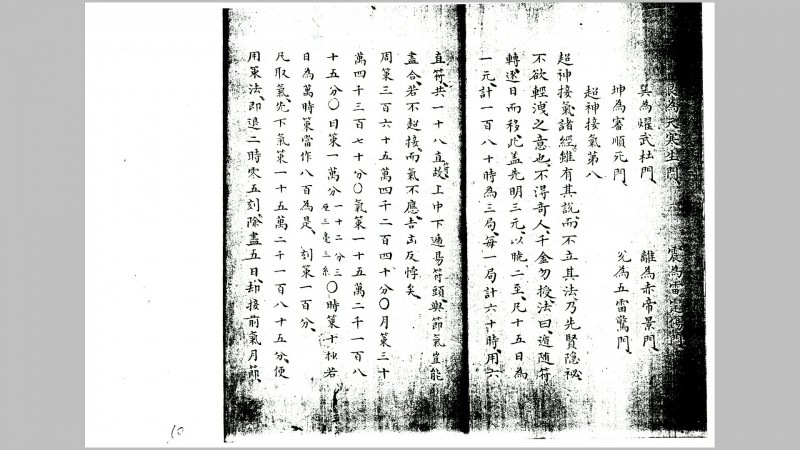 艮為天寒生門 震為雷霆傷門
巽為耀武杜門 離為赤帝景門
坤為審順死門 兌為五雷驚門
超神接氣第八
超神接氣諸經雖有其說而不立其法乃先賢隱祕
不欲輕洩之意也不得奇人千金勿授法曰遁隨符
轉逐日而移此蓋先明三元以曉二至凡十五日為
一元計一百八十時為三局每一局計六十時用六
直符共一十八直故上中下遁易符頭與節氣豈能
盡合若不超接而氣不應吉凶反悖矣
周策三百六十五萬四千二百四十分〇月策三十
萬四千三百七十分〇氣策一十五萬二千一百八
十五分〇日策一萬分一十二分三毫三絲〇時策十抄若
日為萬時策當作八百為是刻策一百分
凡取氣先下氣策一十五萬二千一百八十五分便
用策法即退二時零五刻除盡五日却接前氣月節
10